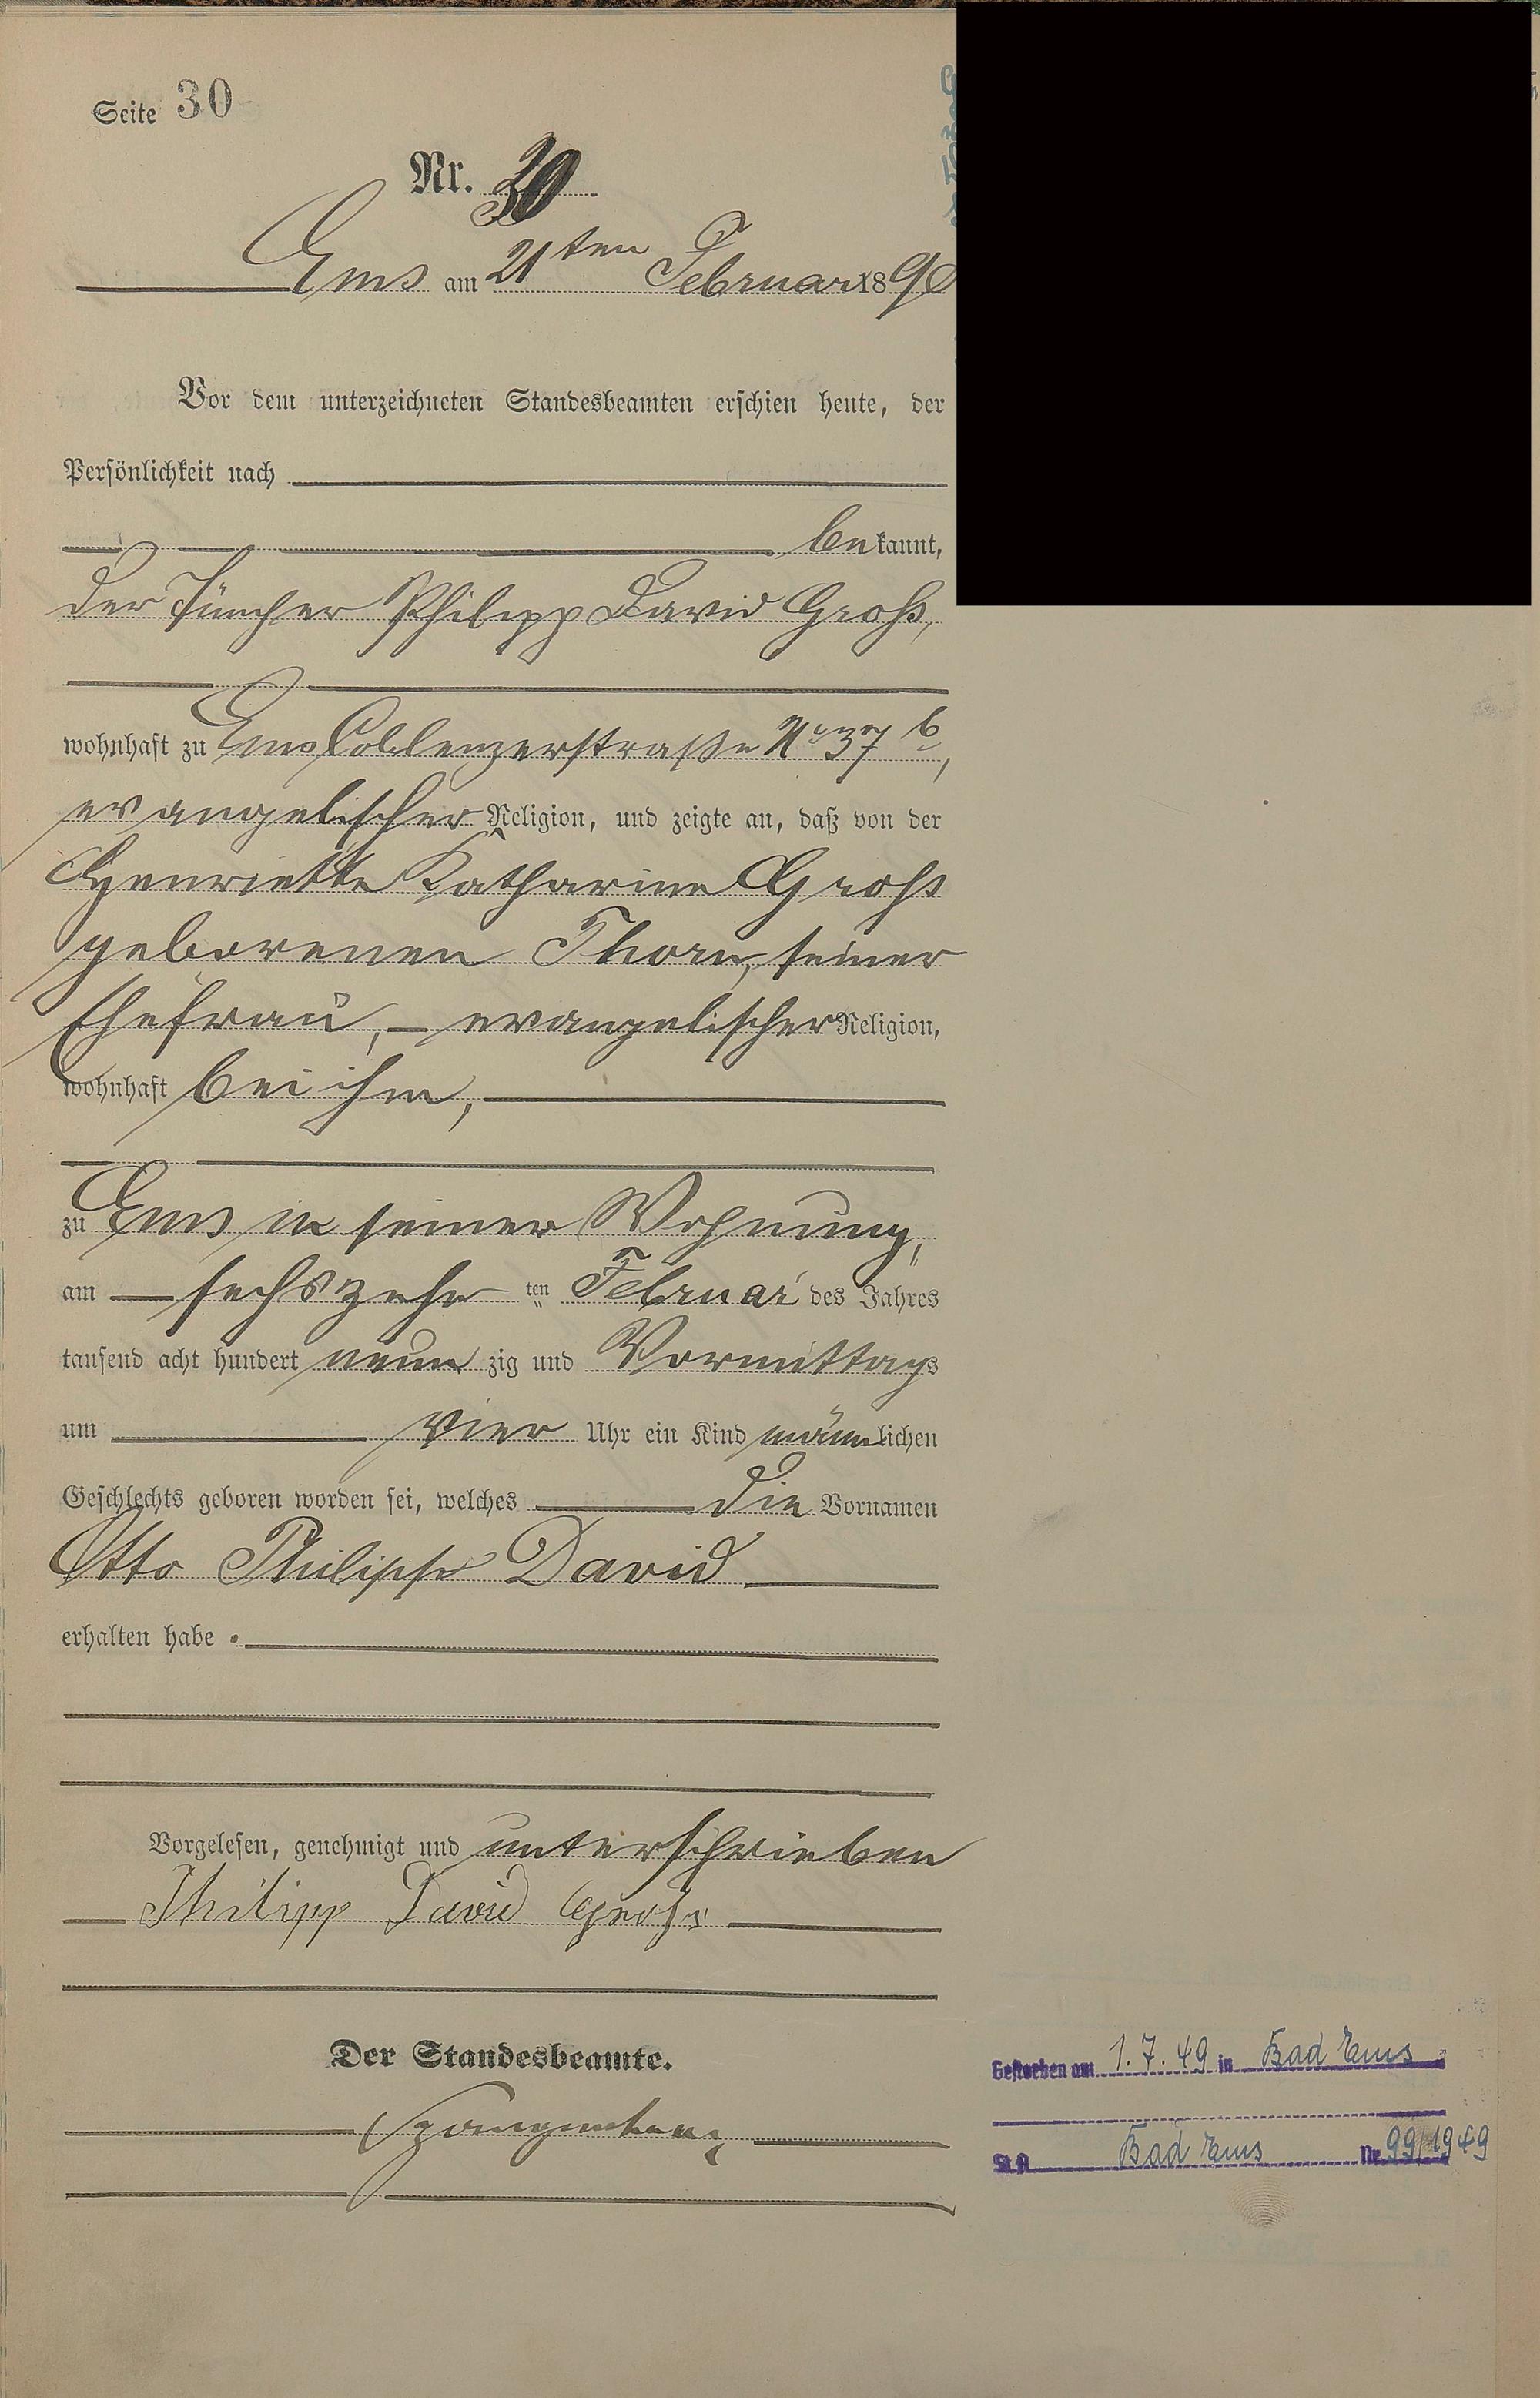 Seite 30
Nr. 30
Ems am 21ten Februar 1890
Vor dem unterzeichneten Standesbeamten erschien heute, der
Persönlichkeit nach
bekannt,
der Tüncher Philipp David Groß,
wohnhaft zu Ems Coblenzerstraße No 37 b,
evangelischer Religion, und zeigte an, daß von der
Henriette Katharine Groß
geborenen Thorn, seiner
Ehefrau, evangelischer Religion,
wohnhaft bei ihm,
zu Ems in seiner Wohnung,
am sechszehnten Februar des Jahres
tausend acht hundert neunzig und Vormittags
um vier Uhr ein Kind männlichen
Geschlechts geboren worden sei, welches die Vornamen
Otto Philipp David
erhalten habe.
Vorgelesen, genehmigt und unterschrieben
Philipp David Groß
Der Standesbeamte.
Gestorben am 1.7.49 in Bad Ems
St.A. Bad Ems Nr. 99/1949